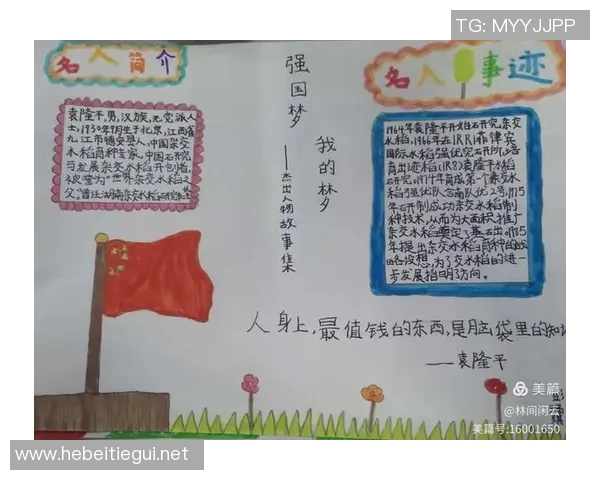 TG: MYYJJPP
名人简介
袁隆平,男,汉族,无党派人
士,1930年9月生于北京,江西省
九江市德安县人,中国杂交
水稻育种专家,中国研究
与发展杂交水稻开创者,
被誉为“世界杂交水稻之
父。”曾任湖南杂交水稻研究
强国梦 我的梦
——杰出人物故事集
名人事迹
1964年袁隆平开始研究杂交
水稻,1966年
国际水稻
1975
年研制成功杂交水稻制
种技术,从而为大面积推广
杂交水稻奠定了基石出。1985
年提出杂交水稻育种的战
略设想,为了交水稻的进一
步发展指明了方向。
人身上,最值钱的东西,是脑袋里的知
——袁隆平
美篇
@林间闲云
美篇号:16001650
www.hebeitiegui.net